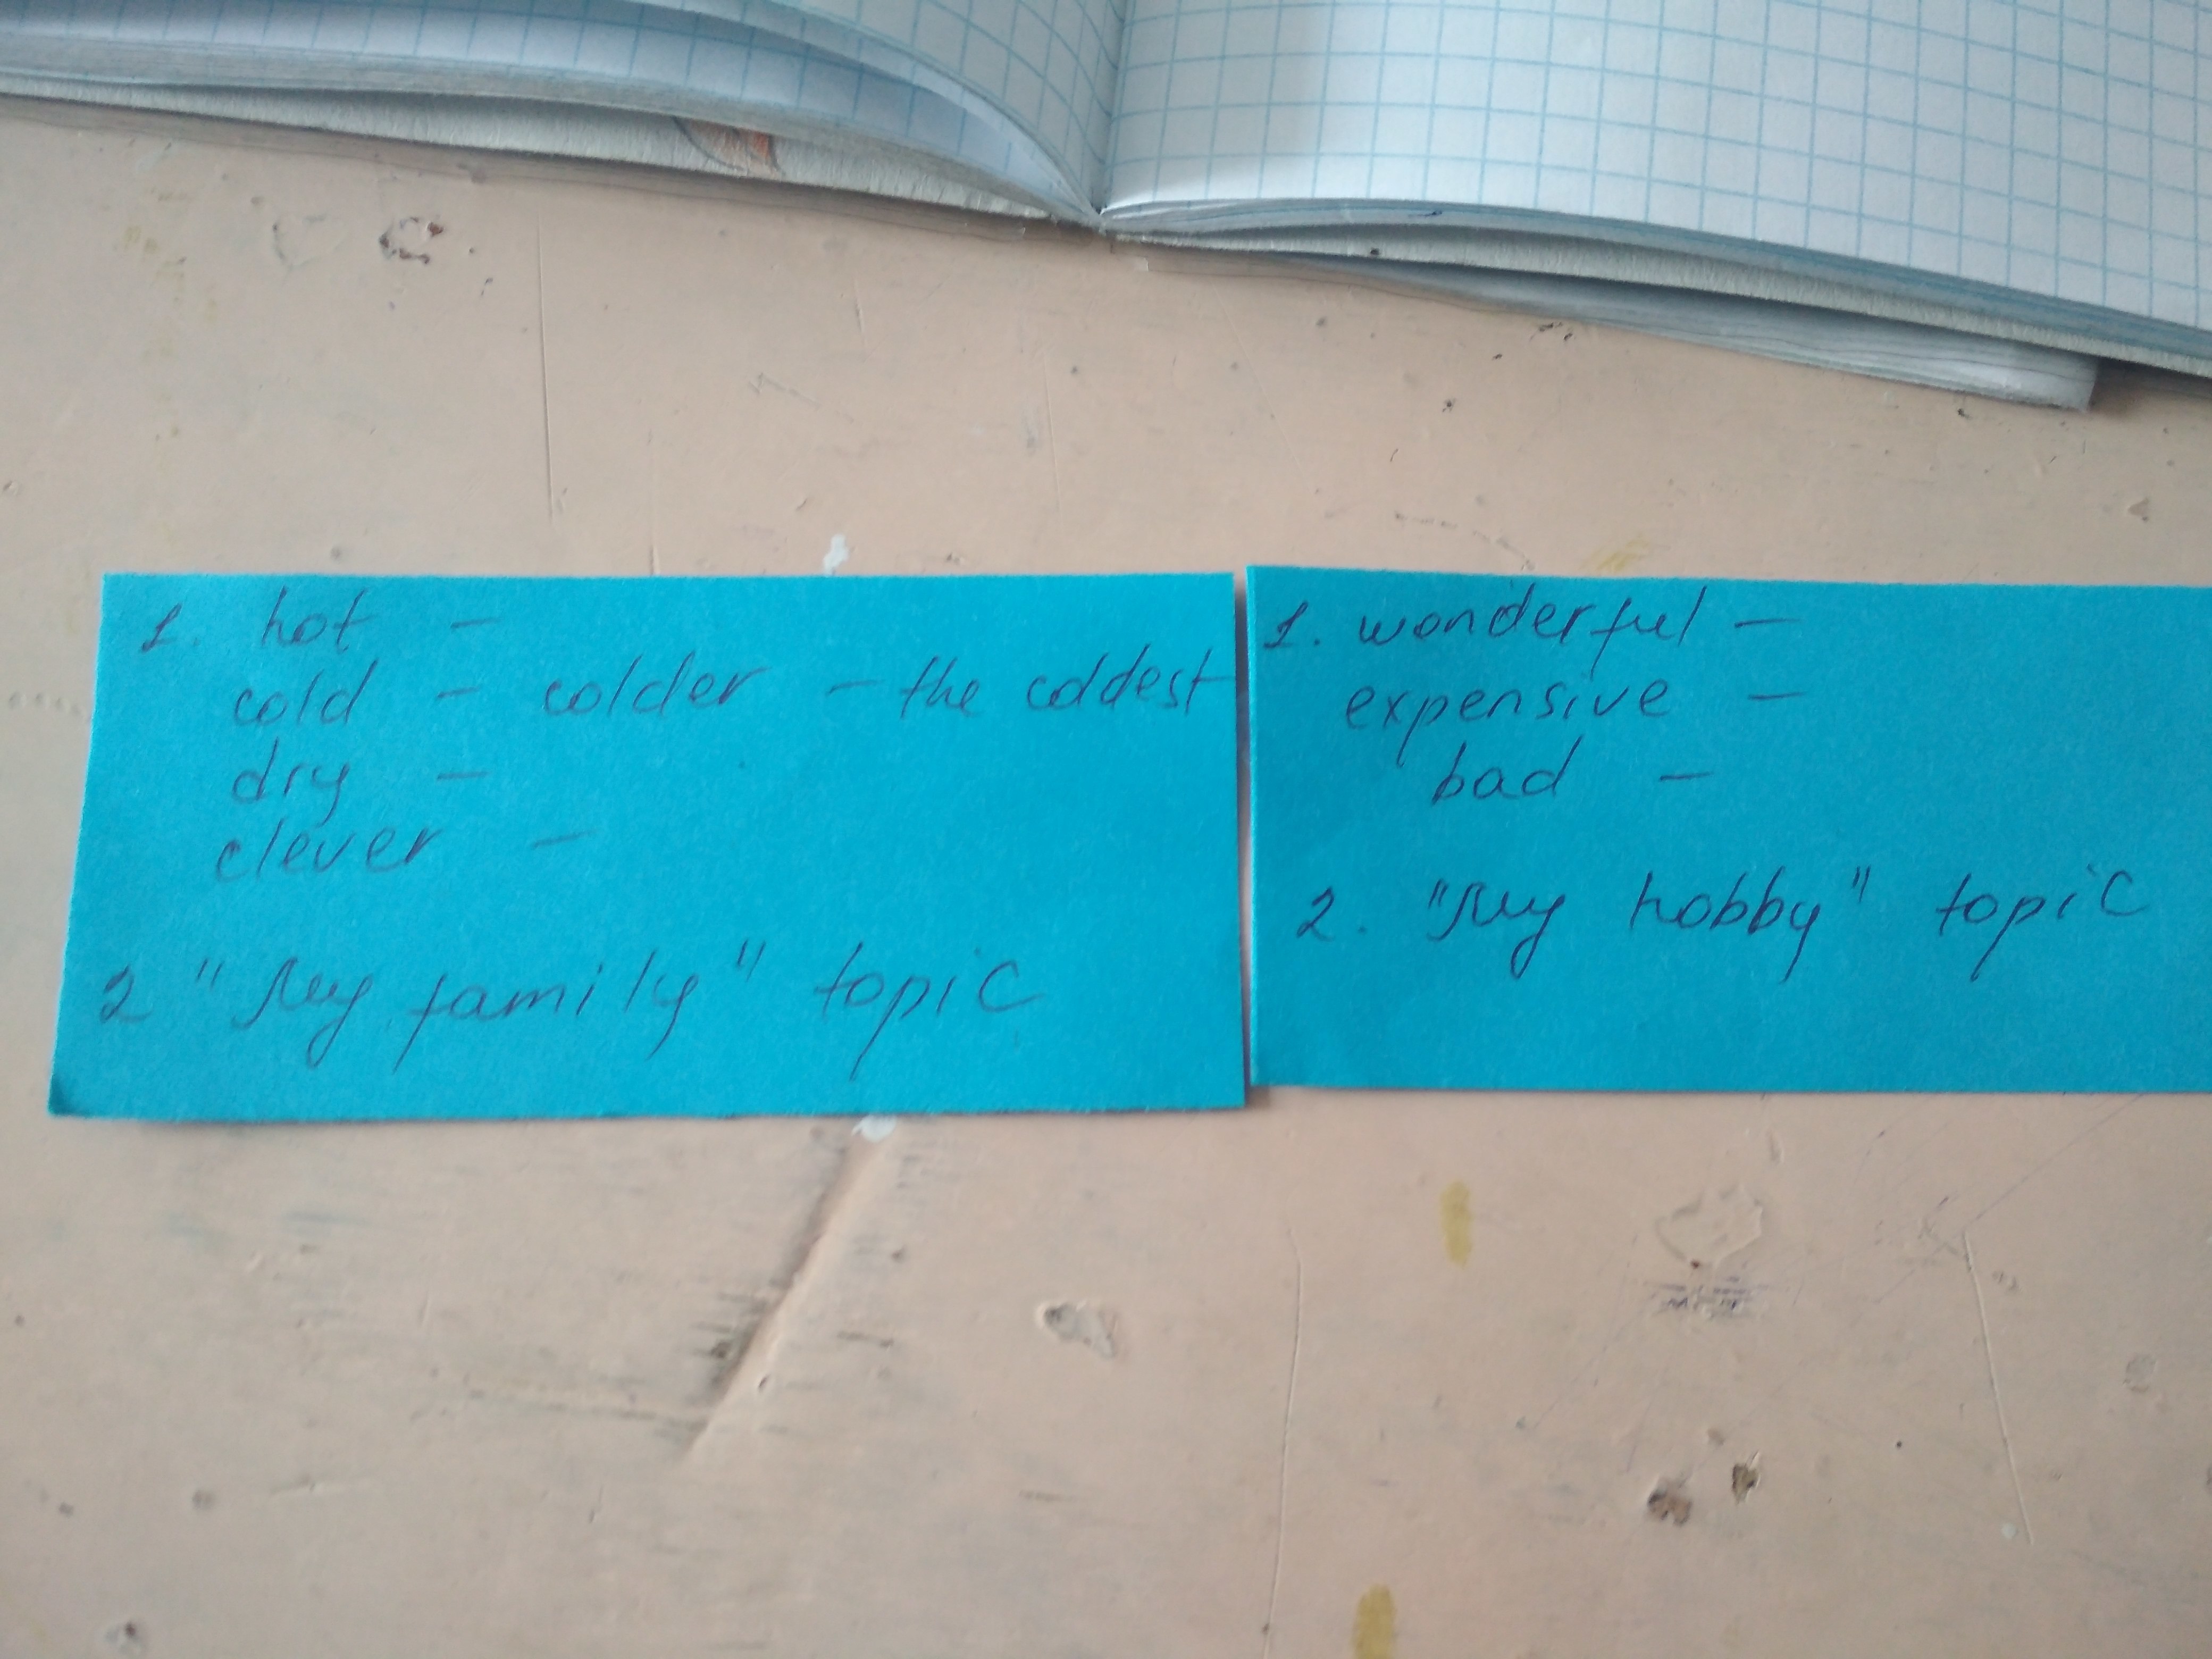 1. hot -
cold - colder - the coldest
dry -
clever -
2 "My family" topic
1. wonderful -
expensive -
bad -
2. "My hobby" topic